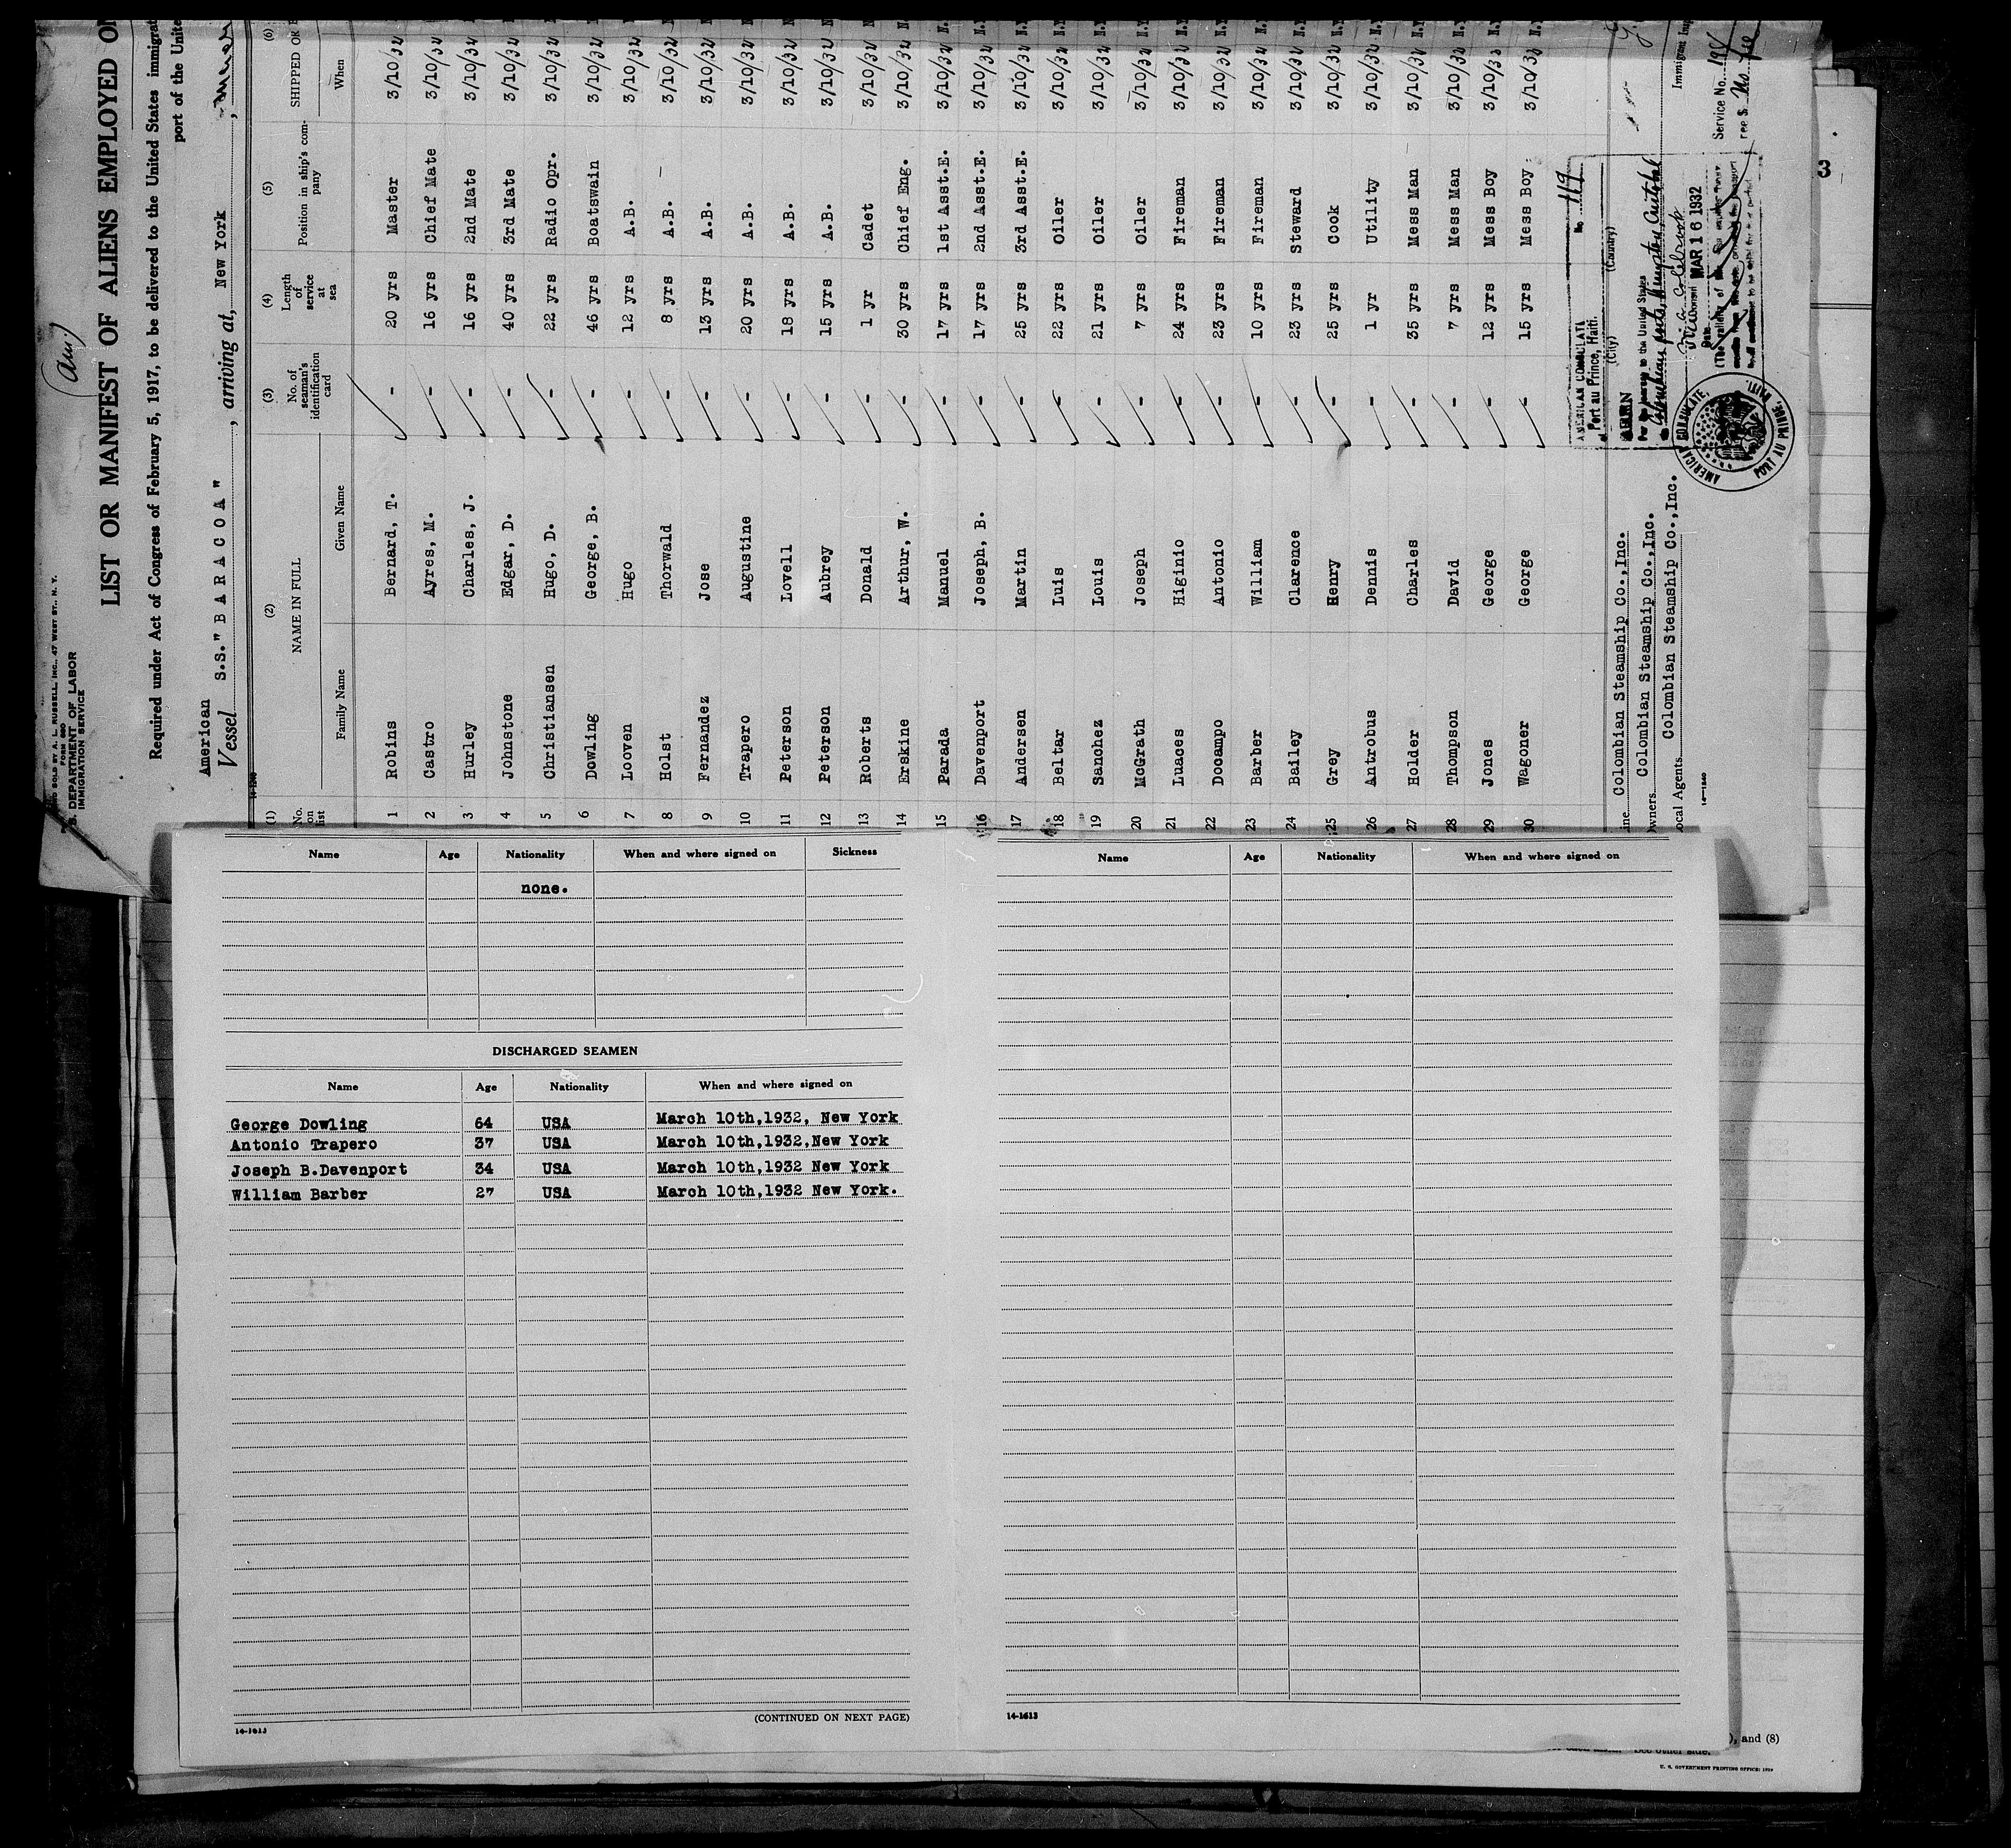 (Am.)
FORM 680
U. S. DEPARTMENT OF LABOR
IMMIGRATION SERVICE
LIST OR MANIFEST OF ALIENS EMPLOYED ON
Required under Act of Congress of February 5, 1917, to be delivered to the United States immigra
port of the Unite
American
Vessel S.S." B A R A C O A " , arriving at, New York ,
(1) (2) (3) (4) (5) (6)
No. on list NAME IN FULL No. of seaman's identification card Length of service at sea Position in ship's company SHIPPED OR
Family Name Given Name When
1 Robins Bernard, T. - 20 yrs Master 3/10/32
2 Castro Ayres, M. - 16 yrs Chief Mate 3/10/32
3 Hurley Charles, J. - 16 yrs 2nd Mate 3/10/32
4 Johnstone Edgar, D. - 40 yrs 3rd Mate 3/10/32
5 Christiansen Hugo, D. - 22 yrs Radio Opr. 3/10/32
6 Dowling George, B. - 46 yrs Boatswain 3/10/32
7 Looven Hugo - 12 yrs A.B. 3/10/32
8 Holst Thorwald - 8 yrs A.B. 3/10/32
9 Fernandez Jose - 13 yrs A.B. 3/10/32
10 Trapero Augustine - 20 yrs A.B. 3/10/32
11 Peterson Lovell - 18 yrs A.B. 3/10/32
12 Peterson Aubrey - 15 yrs A.B. 3/10/32
13 Roberts Donald - 1 yr Cadet 3/10/32
14 Erskine Arthur, W. - 30 yrs Chief Eng. 3/10/32 N.
15 Parada Manuel - 17 yrs 1st Asst.E. 3/10/32 N.
16 Davenport Joseph, B. - 17 yrs 2nd Asst.E. 3/10/32 N.Y
17 Andersen Martin - 25 yrs 3rd Asst.E. 3/10/32 N.Y
18 Beltar Luis - 22 yrs Oiler 3/10/32 N.Y
19 Sanchez Louis - 21 yrs Oiler 3/10/32 N.Y
20 McGrath Joseph - 7 yrs Oiler 3/10/32 N.Y
21 Luaces Higinio - 24 yrs Fireman 3/10/32 N.Y
22 Docampo Antonio - 23 yrs Fireman 3/10/32 N.Y
23 Barber William - 10 yrs Fireman 3/10/32 N.Y
24 Bailey Clarence - 23 yrs Steward 3/10/32 N.Y
25 Grey Henry - 25 yrs Cook 3/10/32 N.Y
26 Antrobus Dennis - 1 yr Utility 3/10/32 N.Y
27 Holder Charles - 35 yrs Mess Man 3/10/32 N.Y
28 Thompson David - 7 yrs Mess Man 3/10/32 N.Y
29 Jones George - 12 yrs Mess Boy 3/10/32 N.Y
30 Wagoner George - 15 yrs Mess Boy 3/10/32 N.Y
Line Colombian Steamship Co.,Inc.
Owners Colombian Steamship Co.,Inc.
Local Agents Colombian Steamship Co.,Inc.
14-1240
No. 119
AMERICAN CONSULATE
Port au Prince, Haiti.
(City) (Country)
For the journey to the United States
MAR 16 1932
Date
Service No.
Fee $ No fee
AMERICAN CONSULATE,
PORT AU PRINCE, HAITI.
3
Name Age Nationality When and where signed on Sickness
none.
DISCHARGED SEAMEN
Name Age Nationality When and where signed on
George Dowling 64 USA March 10th,1932, New York
Antonio Trapero 37 USA March 10th,1932,New York
Joseph B.Davenport 34 USA March 10th,1932 New York
William Barber 27 USA March 10th,1932 New York.
(CONTINUED ON NEXT PAGE)
14-1613
Name Age Nationality When and where signed on
14-1613
), and (8)
See other side.
U. S. GOVERNMENT PRINTING OFFICE: 1929